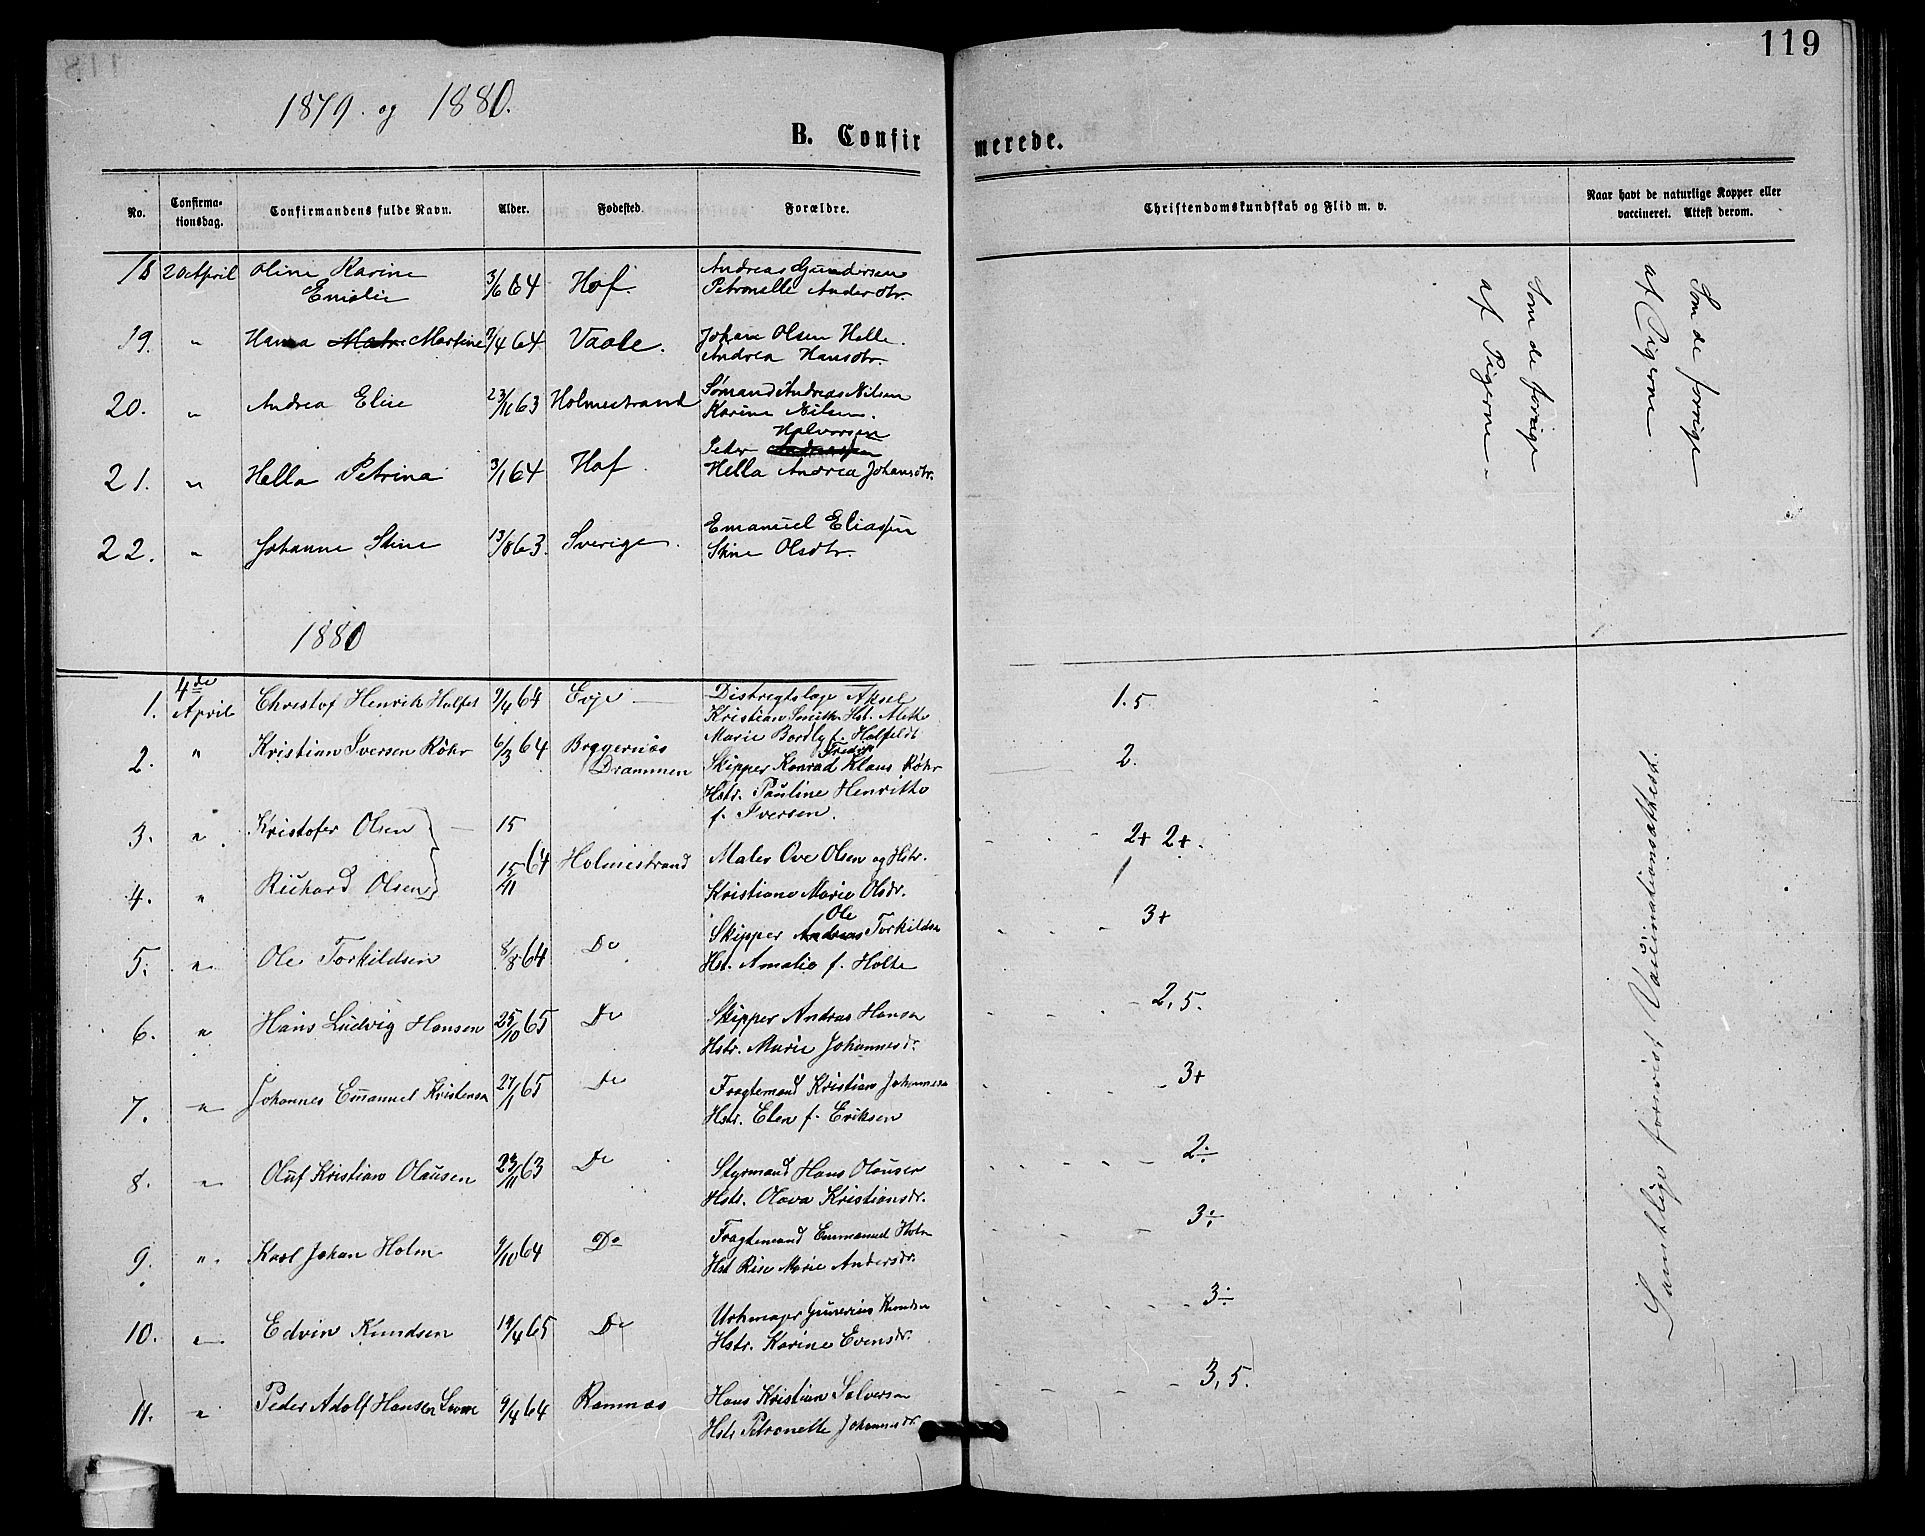 119
1879. og 1880.
B. Confirmerede.
No.
Confirmationsdag.
Confirmandens fulde Navn.
Alder.
Fødested.
Forældre.
Christendomskundskab og Flid m. v.
Naar havt de naturlige Kopper eller vaccineret. Attest derom.
18 20 April Oline Karine 3/6 64 Hof. Andreas Gundersen
Emilie Petronelle Andersdtr.
19. " Hanna Martine 7/4 64 Vaale. Johan Olsen Helle.
Andrea Hansdtr.
20. " Andrea Elise 23/11 63 Holmestrand Sømand Andreas Nilsen
Karine Nilsen.
Halvorsen
21. " Hella Petrina 3/1 64 Hof. Peder Andersen
Hella Andrea Johansdtr.
22. " Johanne Stine 13/8 63. Sverige. Emanuel Eliassen
Stine Olsdtr.
Som de forrige
af Pigerne
Som de forrige
af Pigerne
1880
1. 4de April Christof Henrik Halfet 9/4 64 Eoje Distrigtslæge Aksel 1.5
Kristian Smith Hst. Alette
Marie Bordly f. Halfeldt
2. " Kristian Iversen Röhr 6/3 64 Bragernæs Drammen Skipper Konrad Fredrik Klaus Röhr 2.
Hstr. Pauline Henritte
f. Iversen.
3. " Kristofer Olsen 15 2+ 2+.
4. " Richard Olsen 15/11 64 Holmestrand Maler Ove Olsen og Hstr.
Kristiane Marie Olsdr.
5. " Ole Torkildsen 8/8 64 Do Skipper Andreas Ole Torkildsen 3+
Hst. Amalie f. Holte
6. " Hans Ludvig Hansen 25/10 65 Do Skipper Andras Hansen 2,5.
Hstr. Marie Johannesdr.
7. " Johannes Emanuel Kristensen 27/1 65 Do Fragtemand Kristian Johannesen 3+
Hstr. Elen f. Eriksen
8. " Oluf Kristian Olausen 23/11 63 Do Styrmand Hans Olausen 2÷
Hstr. Olava Kristiansdr.
9. " Karl Johan Holm 9/10 64 Do Fragtemand Emmanuel Holm 3÷
Hst Rise Marie Andersdr.
10. " Edvin Knudsen 19/4 65 Do Urhmager Gunerius Knudsen 3÷
Hstr. Karine Evensdr.
11. " Peder Adolf Hansen 9/4 64 Ramnæs Hans Kristian Solversen 3,5.
Hstr Petronette Johannesdr.
Samtlige forevist Vaccinationsattest.